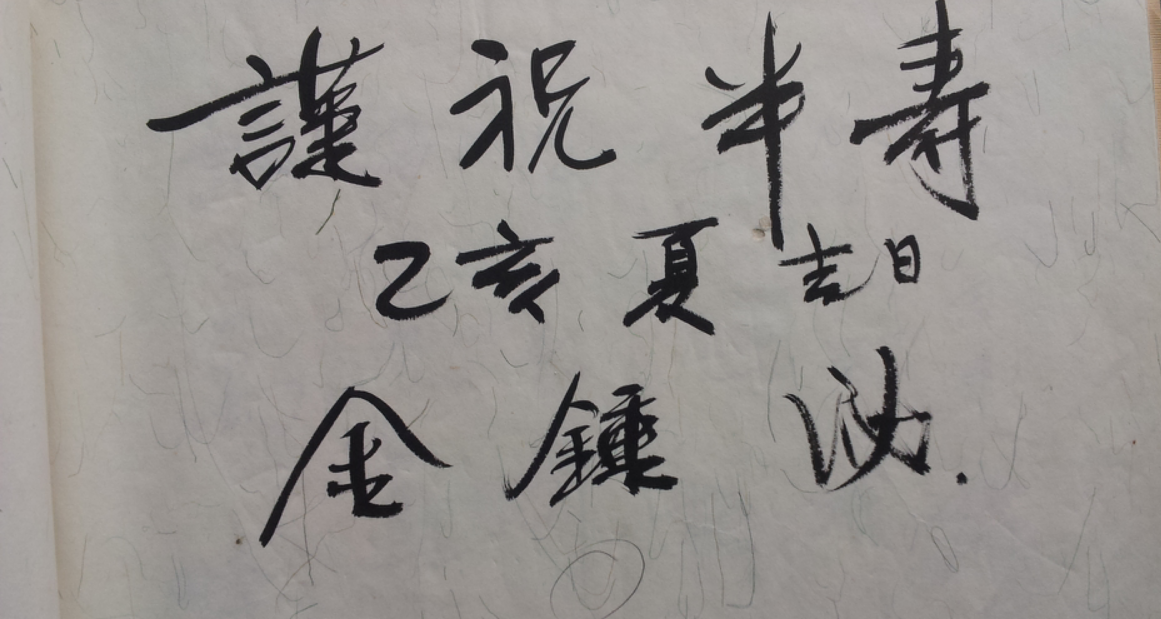 謹祝半寿
乙亥夏吉日
金鍾